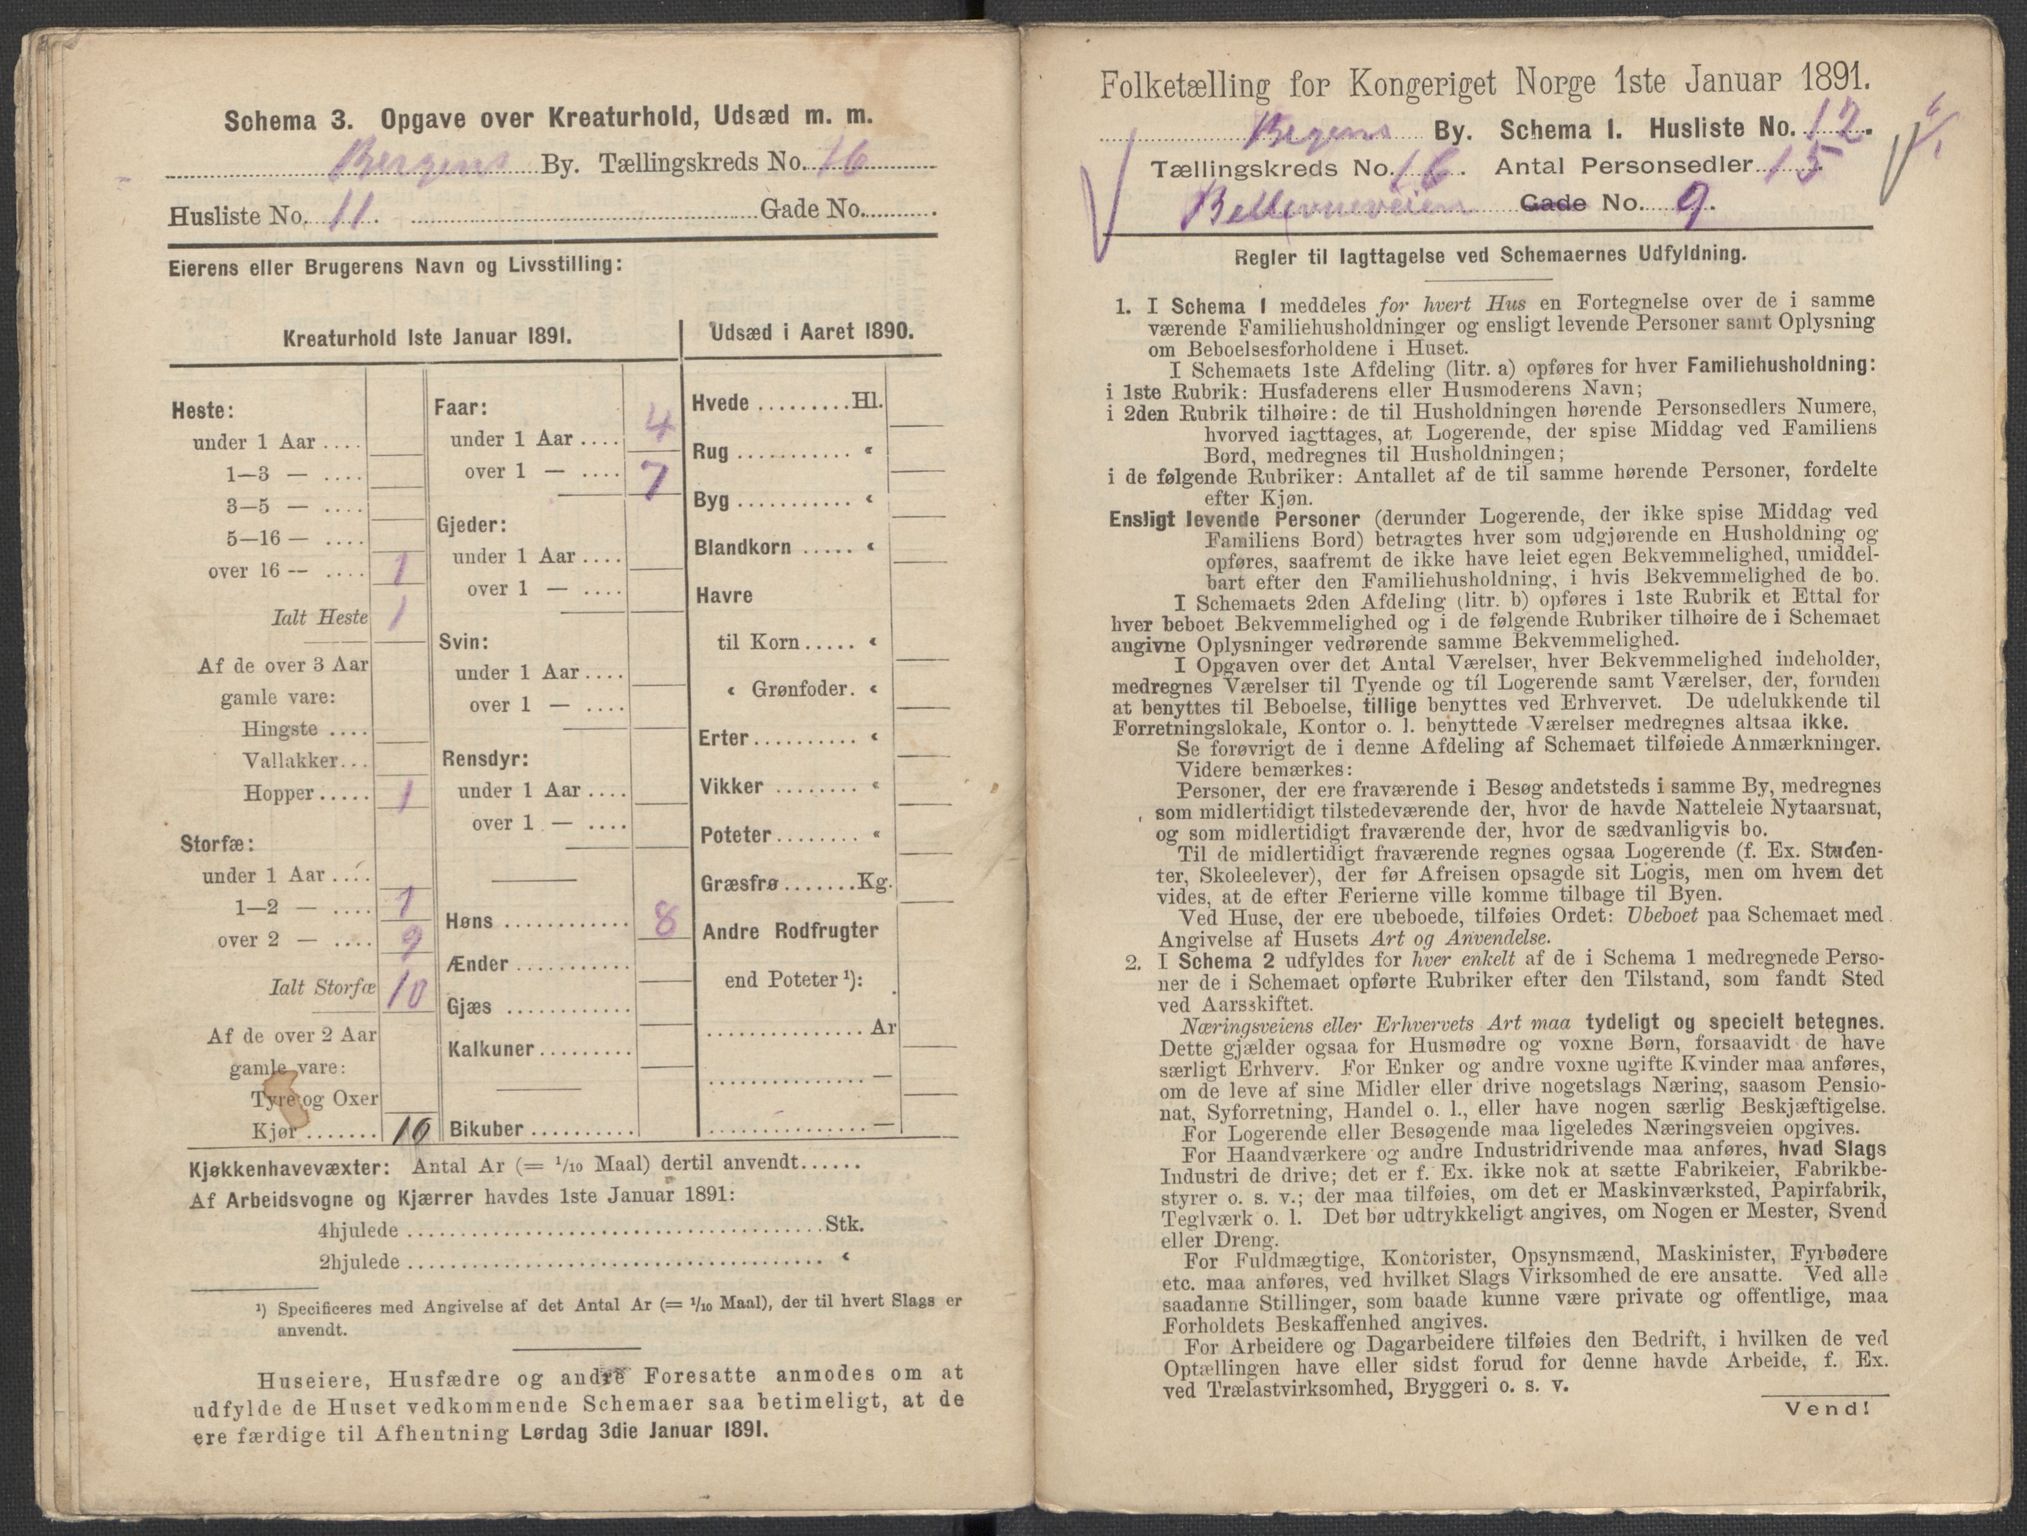 Schema 3. Opgave over Kreaturhold, Udsæd m. m.
Bergens By. Tællingskreds No. 16
Husliste No. 11. Gade No. .
Eierens eller Brugerens Navn og Livsstilling:
Kreaturhold 1ste Januar 1891.
Heste:
under 1 Aar ....
1—3 — ....
3—5 — ....
5—16 — ....
over 16 — .... 1
Ialt Heste 1
Af de over 3 Aar
gamle vare:
Hingste ....
Vallakker...
Hopper ..... 1
Storfæ:
under 1 Aar ....
1—2 — .... 1
over 2 — .... 9
Ialt Storfæ 10
Af de over 2 Aar
gamle vare:
Tyre og Oxer
Kjør ....... 10
Faar:
under 1 Aar .... 4
over 1 — .... 7
Gjeder:
under 1 Aar ....
over 1 — ....
Svin:
under 1 Aar ....
over 1 — ....
Rensdyr:
under 1 Aar ....
over 1 — ....
Høns ............ 8
Ænder ...........
Gjæs ............
Kalkuner .........
Bikuber ..........
Udsæd i Aaret 1890.
Hvede ......... Hl.
Rug ........... “
Byg ........... “
Blandkorn ..... “
Havre
til Korn ..... “
“ Grønfoder. “
Erter .......... “
Vikker ........ “
Poteter ........ “
Græsfrø ....... Kg.
Andre Rodfrugter
end Poteter ¹):
............... Ar
............... —
............... —
Kjøkkenhavevæxter: Antal Ar (= 1/10 Maal) dertil anvendt......
Af Arbeidsvogne og Kjærrer havdes 1ste Januar 1891:
4hjulede ........................................ Stk.
2hjulede ........................................ “
¹) Specificeres med Angivelse af det Antal Ar (= 1/10 Maal), der til hvert Slags er
anvendt.
Huseiere, Husfædre og andre Foresatte anmodes om at
udfylde de Huset vedkommende Schemaer saa betimeligt, at de
ere færdige til Afhentning Lørdag 3die Januar 1891.
Folketælling for Kongeriget Norge 1ste Januar 1891.
Begens By. Schema 1. Husliste No. 12.
Tællingskreds No. 16. Antal Personsedler 15.
Bellevueveien Gade No. 9.
Regler til Iagttagelse ved Schemaernes Udfyldning.
1. I Schema 1 meddeles for hvert Hus en Fortegnelse over de i samme
værende Familiehusholdninger og ensligt levende Personer samt Oplysning
om Beboelsesforholdene i Huset.
I Schemaets 1ste Afdeling (litr. a) opføres for hver Familiehusholdning:
i 1ste Rubrik: Husfaderens eller Husmoderens Navn;
i 2den Rubrik tilhøire: de til Husholdningen hørende Personsedlers Numere,
hvorved iagttages, at Logerende, der spise Middag ved Familiens
Bord, medregnes til Husholdningen;
i de følgende Rubriker: Antallet af de til samme hørende Personer, fordelte
efter Kjøn.
Ensligt levende Personer (derunder Logerende, der ikke spise Middag ved
Familiens Bord) betragtes hver som udgjørende en Husholdning og
opføres, saafremt de ikke have leiet egen Bekvemmelighed, umiddel-
bart efter den Familiehusholdning, i hvis Bekvemmelighed de bo.
I Schemaets 2den Afdeling (litr. b) opføres i 1ste Rubrik et Ettal for
hver beboet Bekvemmelighed og i de følgende Rubriker tilhøire de i Schemaet
angivne Oplysninger vedrørende samme Bekvemmelighed.
I Opgaven over det Antal Værelser, hver Bekvemmelighed indeholder,
medregnes Værelser til Tyende og til Logerende samt Værelser, der, foruden
at benyttes til Beboelse, tillige benyttes ved Erhvervet. De udelukkende til
Forretningslokale, Kontor o. l. benyttede Værelser medregnes altsaa ikke.
Se forøvrigt de i denne Afdeling af Schemaet tilføiede Anmærkninger.
Videre bemærkes:
Personer, der ere fraværende i Besøg andetsteds i samme By, medregnes
som midlertidigt tilstedeværende der, hvor de havde Natteleie Nytaarsnat,
og som midlertidigt fraværende der, hvor de sædvanligvis bo.
Til de midlertidigt fraværende regnes ogsaa Logerende (f. Ex. Studen-
ter, Skoleelever), der før Afreisen opsagde sit Logis, men om hvem det
vides, at de efter Ferierne ville komme tilbage til Byen.
Ved Huse, der ere ubeboede, tilføies Ordet: Ubeboet paa Schemaet med
Angivelse af Husets Art og Anvendelse.
2. I Schema 2 udfyldes for hver enkelt af de i Schema 1 medregnede Perso-
ner de i Schemaet opførte Rubriker efter den Tilstand, som fandt Sted
ved Aarsskiftet.
Næringsveiens eller Erhvervets Art maa tydeligt og specielt betegnes.
Dette gjælder ogsaa for Husmødre og voxne Børn, forsaavidt de have
særligt Erhverv. For Enker og andre voxne ugifte Kvinder maa anføres,
om de leve af sine Midler eller drive nogetslags Næring, saasom Pensio-
nat, Syforretning, Handel o. l., eller have nogen særlig Beskjæftigelse.
For Logerende eller Besøgende maa ligeledes Næringsveien opgives.
For Haandværkere og andre Industridrivende maa anføres, hvad Slags
Industri de drive; det er f. Ex. ikke nok at sætte Fabrikeier, Fabrikbe-
styrer o. s. v.; der maa tilføies, om det er Maskinværksted, Papirfabrik,
Teglværk o. l. Det bør udtrykkeligt angives, om Nogen er Mester, Svend
eller Dreng.
For Fuldmægtige, Kontorister, Opsynsmænd, Maskinister, Fyrbødere
etc. maa anføres, ved hvilket Slags Virksomhed de ere ansatte. Ved alle
saadanne Stillinger, som baade kunne være private og offentlige, maa
Forholdets Beskaffenhed angives.
For Arbeidere og Dagarbeidere tilføies den Bedrift, i hvilken de ved
Optællingen have eller sidst forud for denne havde Arbeide, f. Ex.
ved Trælastvirksomhed, Bryggeri o. s. v.
Vend!